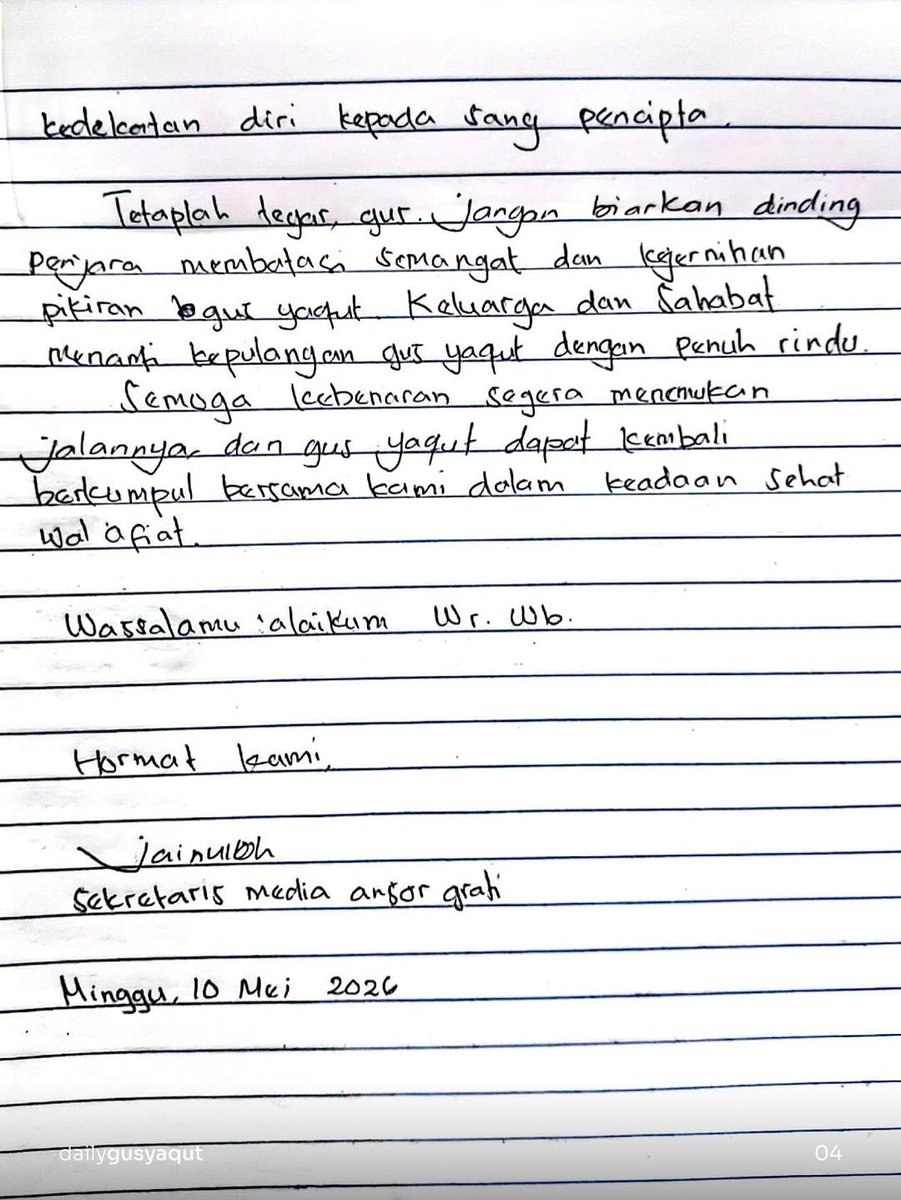 kedekatan diri kepada sang pencipta.
Tetaplah tegar, gus. jangan biarkan dinding
penjara membatasi semangat dan kejernihan
pikiran gus yaqut. Keluarga dan Sahabat
menanti kepulangan gus yaqut dengan penuh rindu.
Semoga kebenaran segera menemukan
jalannya dan gus yaqut dapat kembali
berkumpul bersama kami dalam keadaan sehat
wal 'afiat.
Wassalamu 'alaikum Wr. Wb.
Hormat kami,
Sekretaris media ansor
Minggu, 10 Mei 2026
dailygusyaqut
04